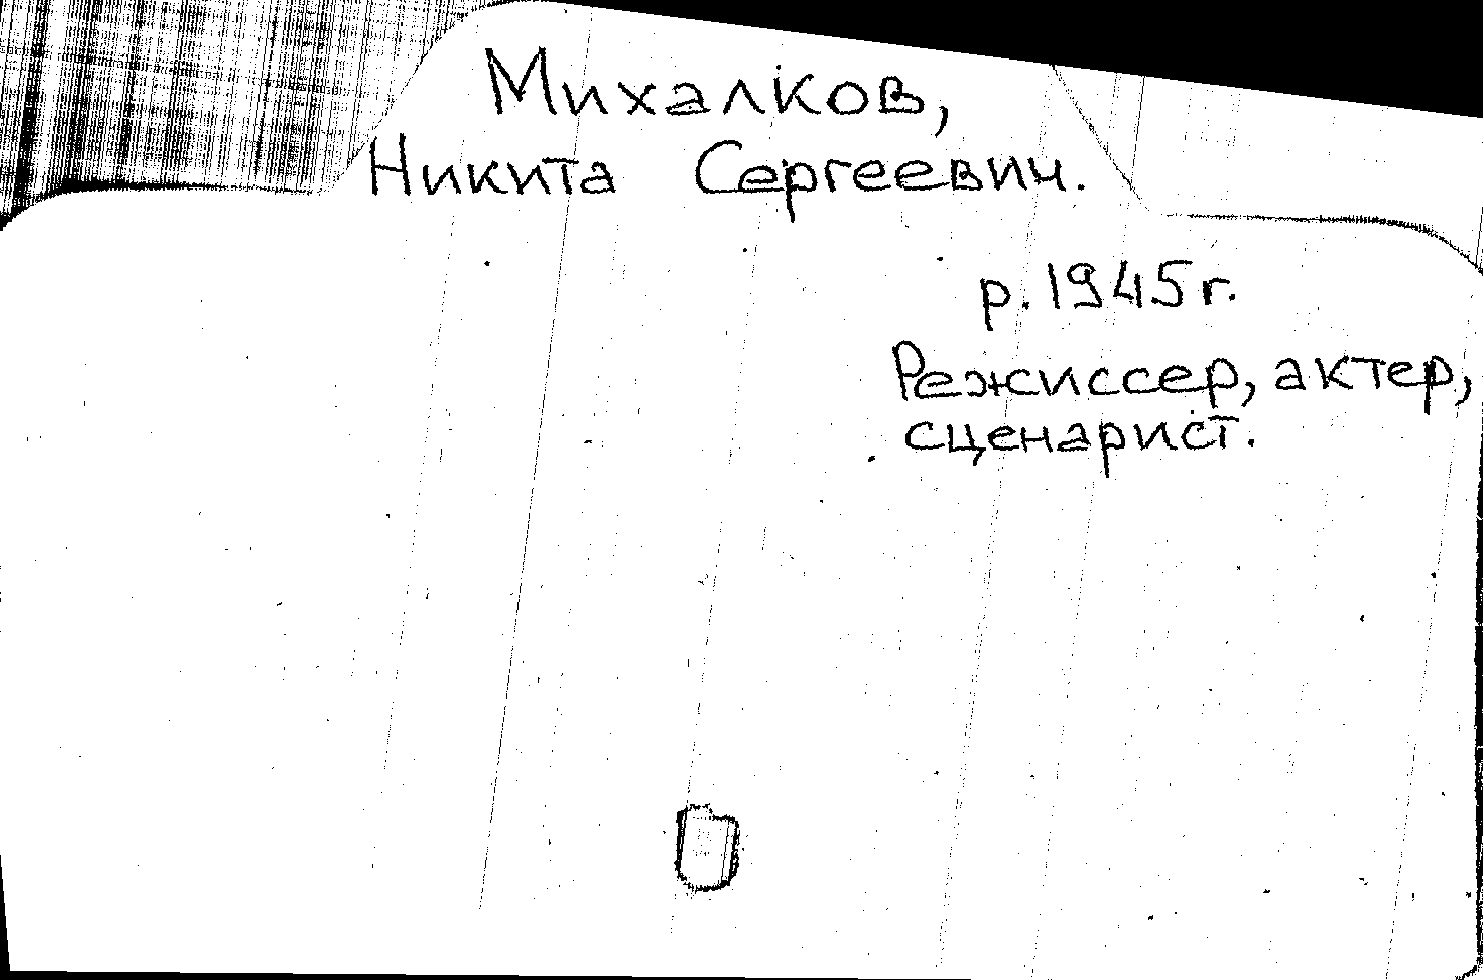 Михалков,
Никита Сергеевич.
р. 1945 г.
Режиссер, актер,
сценарист.